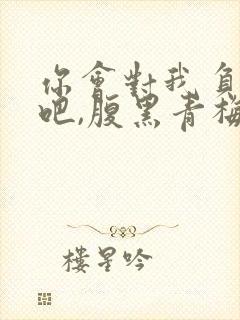 你會對我負
吧,腹黑青梅
樓星吟